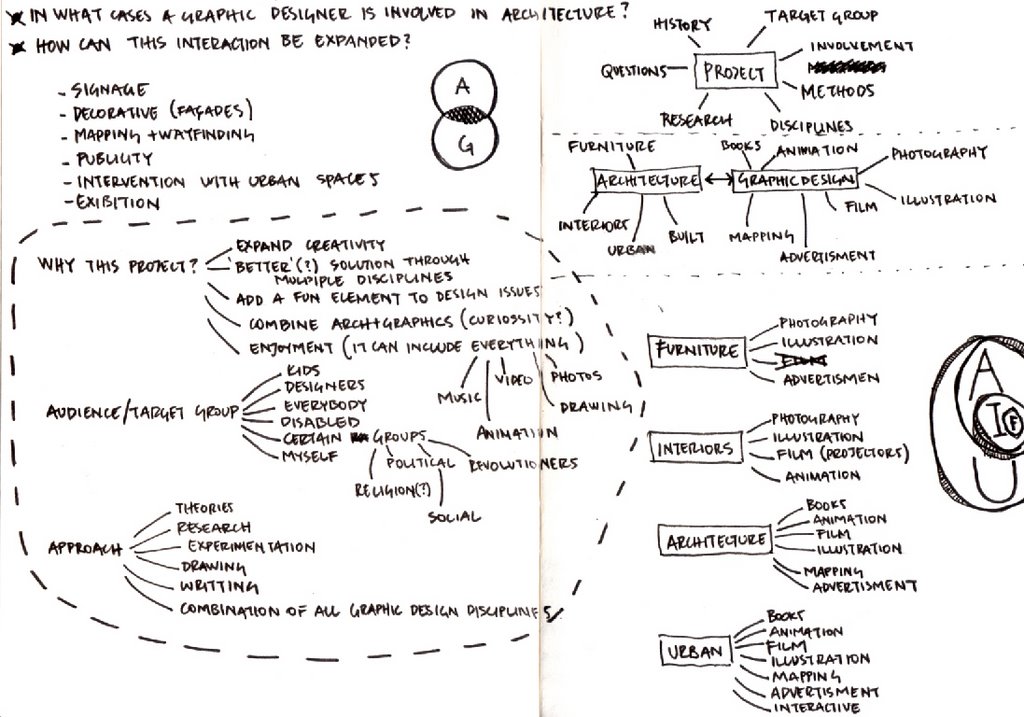 IN WHAT CASES A GRAPHIC DESIGNER IS INVOLVED IN ARCHITECTURE?
HOW CAN THIS INTERACTION BE EXPANDED?
- SIGNAGE
- DECORATIVE (FAÇADES)
- MAPPING + WAYFINDING
- PUBLICITY
- INTERVENTION WITH URBAN SPACES
- EXIBITION
A
G
WHY THIS PROJECT?
EXPAND CREATIVITY
'BETTER'(?) SOLUTION THROUGH
MULTIPLE DISCIPLINES
ADD A FUN ELEMENT TO DESIGN ISSUES
COMBINE ARCH+GRAPHICS (CURIOSSITY?)
ENJOYMENT (IT CAN INCLUDE EVERYTHING)
MUSIC
VIDEO
PHOTOS
ANIMATION
DRAWING
AUDIENCE/TARGET GROUP
KIDS
DESIGNERS
EVERYBODY
DISABLED
CERTAIN GROUPS
MYSELF
RELIGION(?)
POLITICAL
REVOLUTIONERS
SOCIAL
APPROACH
THEORIES
RESEARCH
EXPERIMENTATION
DRAWING
WRITTING
COMBINATION OF ALL GRAPHIC DESIGN DISCIPLINES
PROJECT
HISTORY
TARGET GROUP
INVOLVEMENT
QUESTIONS
METHODS
RESEARCH
DISCIPLINES
ARCHITECTURE
FURNITURE
INTERIORS
URBAN
BUILT
GRAPHIC DESIGN
BOOKS
ANIMATION
PHOTOGRAPHY
ILLUSTRATION
FILM
MAPPING
ADVERTISMENT
FURNITURE
PHOTOGRAPHY
ILLUSTRATION
FILM
ADVERTISMEN
INTERIORS
PHOTOGRAPHY
ILLUSTRATION
FILM (PROJECTORS)
ANIMATION
A
I
F
U
ARCHITECTURE
BOOKS
ANIMATION
FILM
ILLUSTRATION
MAPPING
ADVERTISMENT
URBAN
BOOKS
ANIMATION
FILM
ILLUSTRATION
MAPPING
ADVERTISMENT
INTERACTIVE